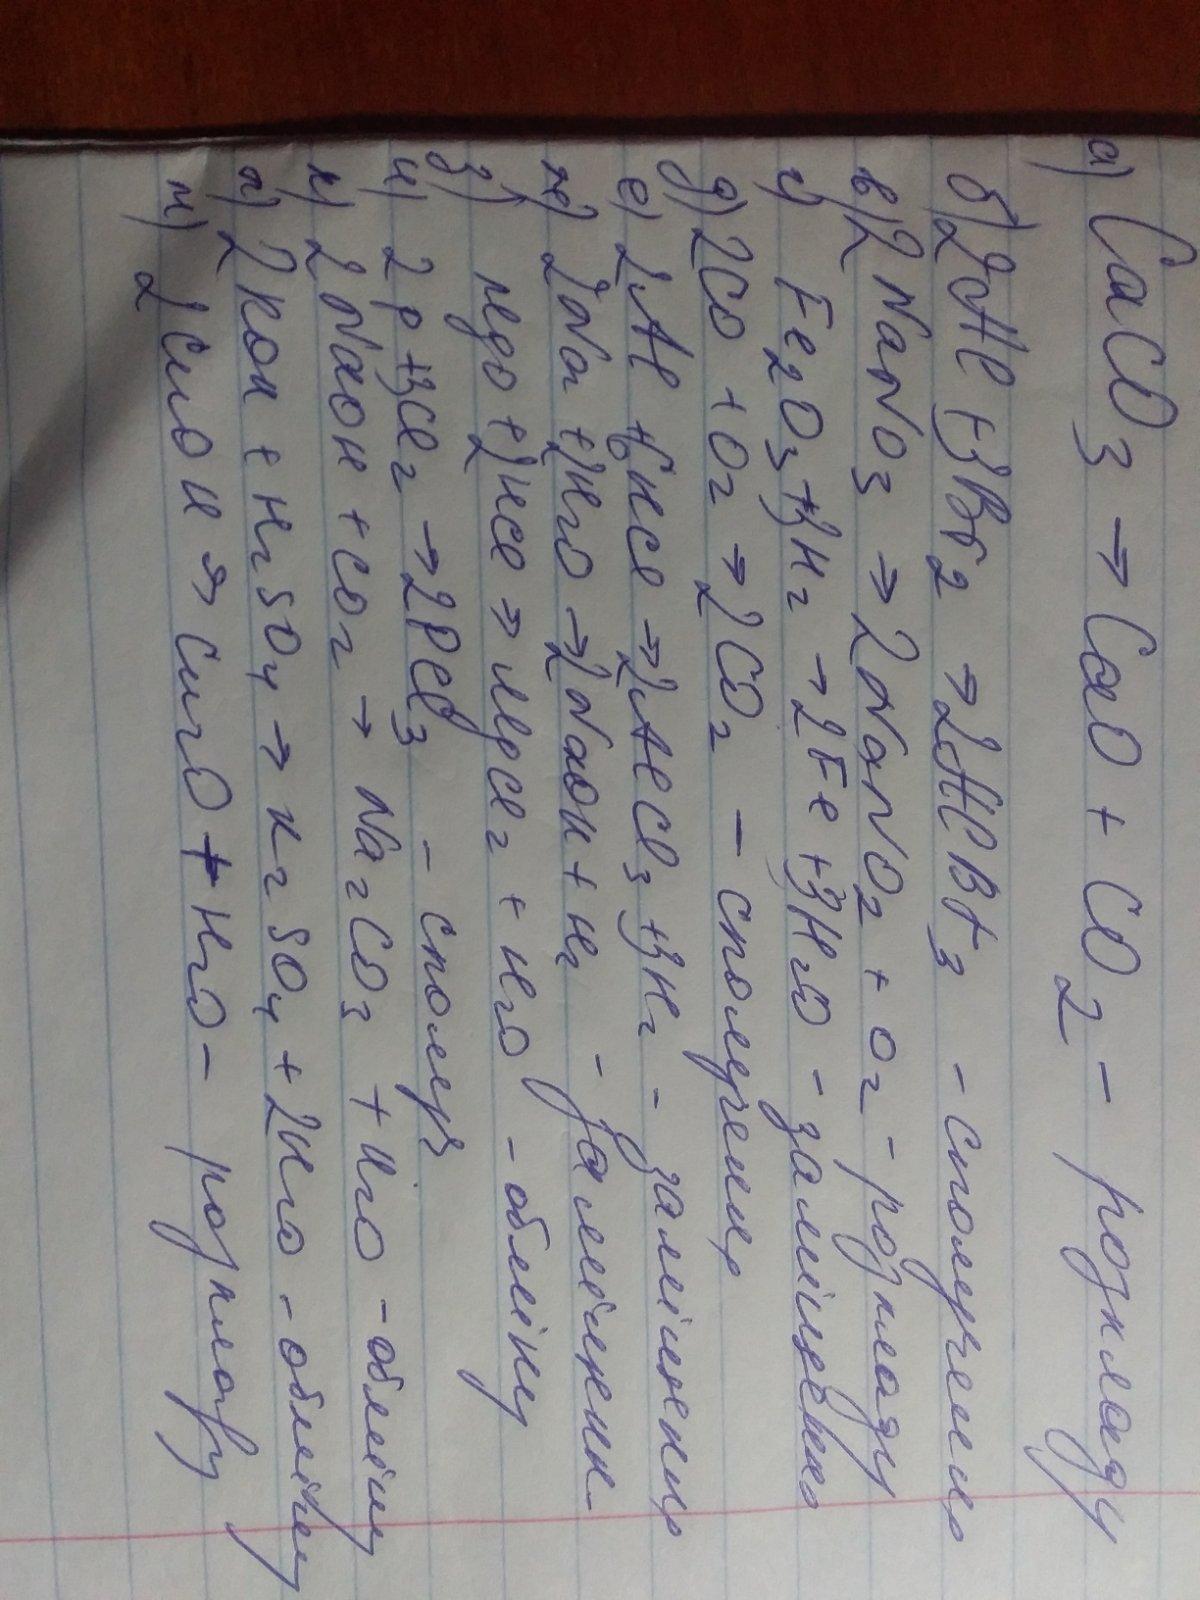 а) CaCO3 → CaO + CO2 - розкладу
б) 2Al + 3Br2 → 2AlBr3 - сполучення
в) 2NaNO3 → 2NaNO2 + O2 - розкладу
г) Fe2O3 + 3H2 → 2Fe + 3H2O - заміщення
д) 2CO + O2 → 2CO2 - сполучення
е) 2Al + 6HCl → 2AlCl3 + 3H2 - заміщення
ж) 2Na + 2H2O → 2NaOH + H2 - заміщенн
з) MgO + 2HCl → MgCl2 + H2O - обміну
и) 2P + 3Cl2 → 2PCl3 - сполуч
к) 2NaOH + CO2 → Na2CO3 + H2O - обміну
л) 2KOH + H2SO4 → K2SO4 + 2H2O - обміну
м) 2CuOH → Cu2O + H2O - розкладу